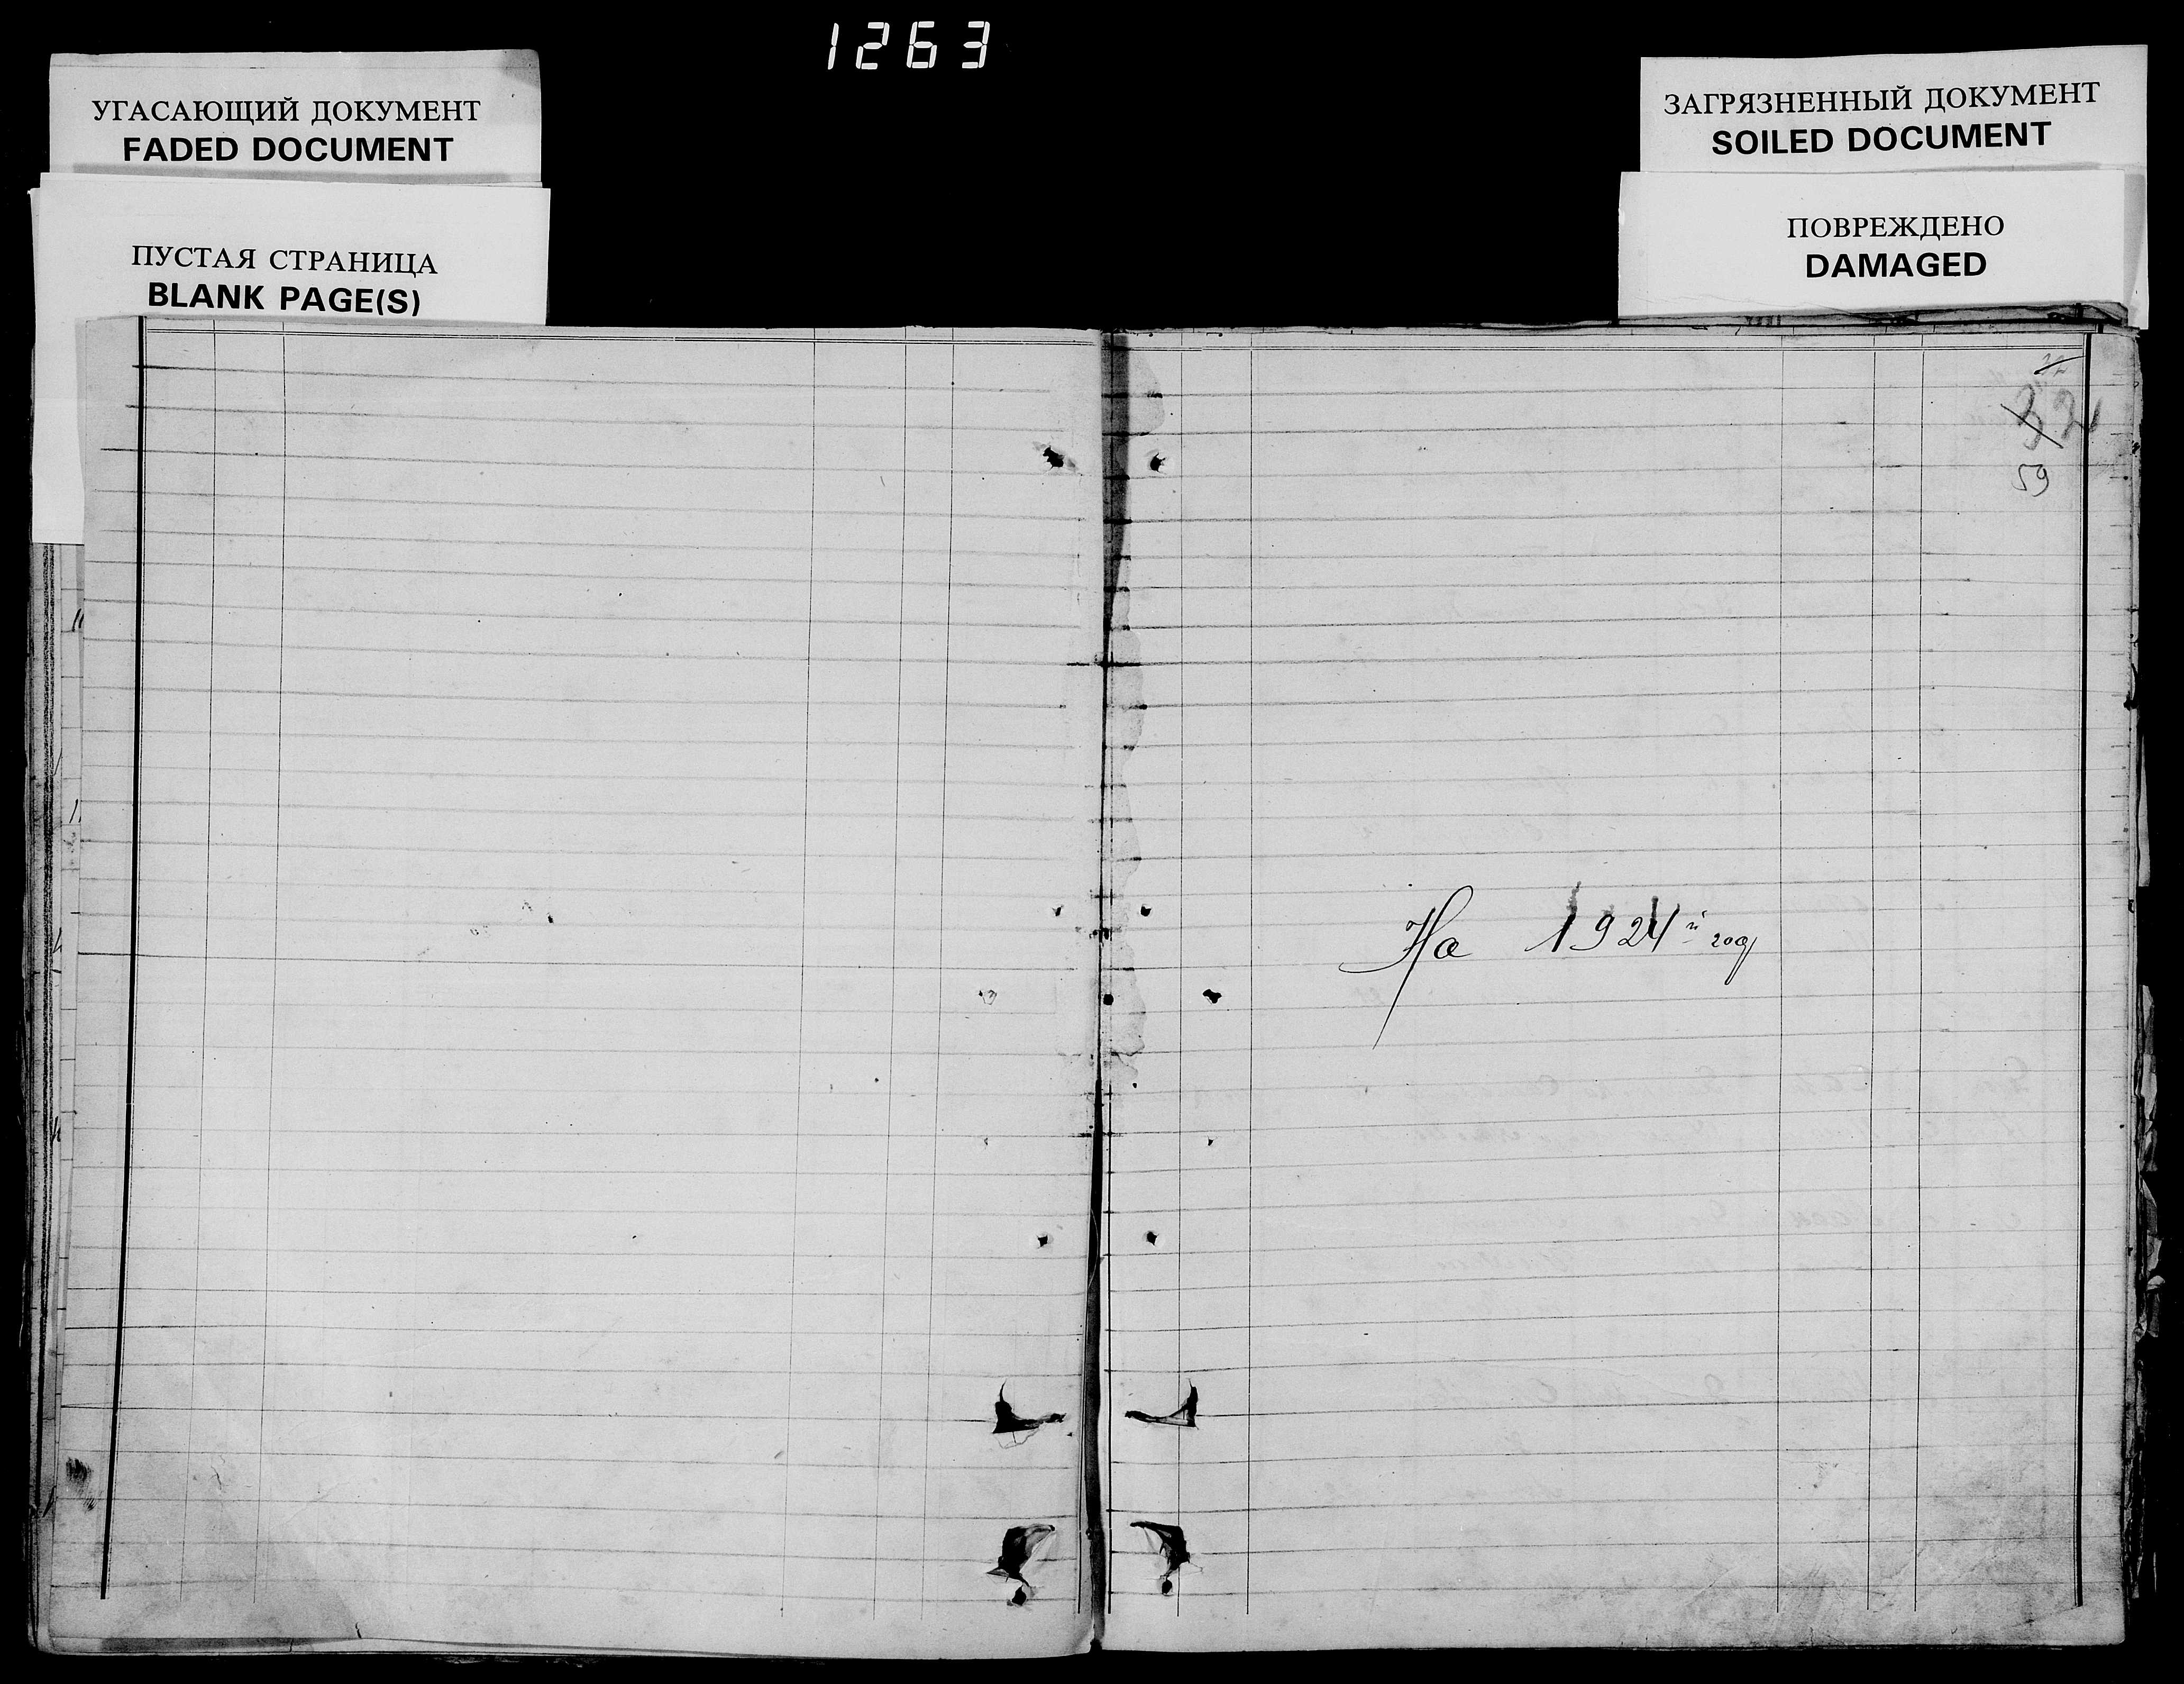 1263
УГАСАЮЩИЙ ДОКУМЕНТ
FADED DOCUMENT
ПУСТАЯ СТРАНИЦА
BLANK PAGE(S)
ЗАГРЯЗНЕННЫЙ ДОКУМЕНТ
SOILED DOCUMENT
ПОВРЕЖДЕНО
DAMAGED
32
32
59
На 1924й год